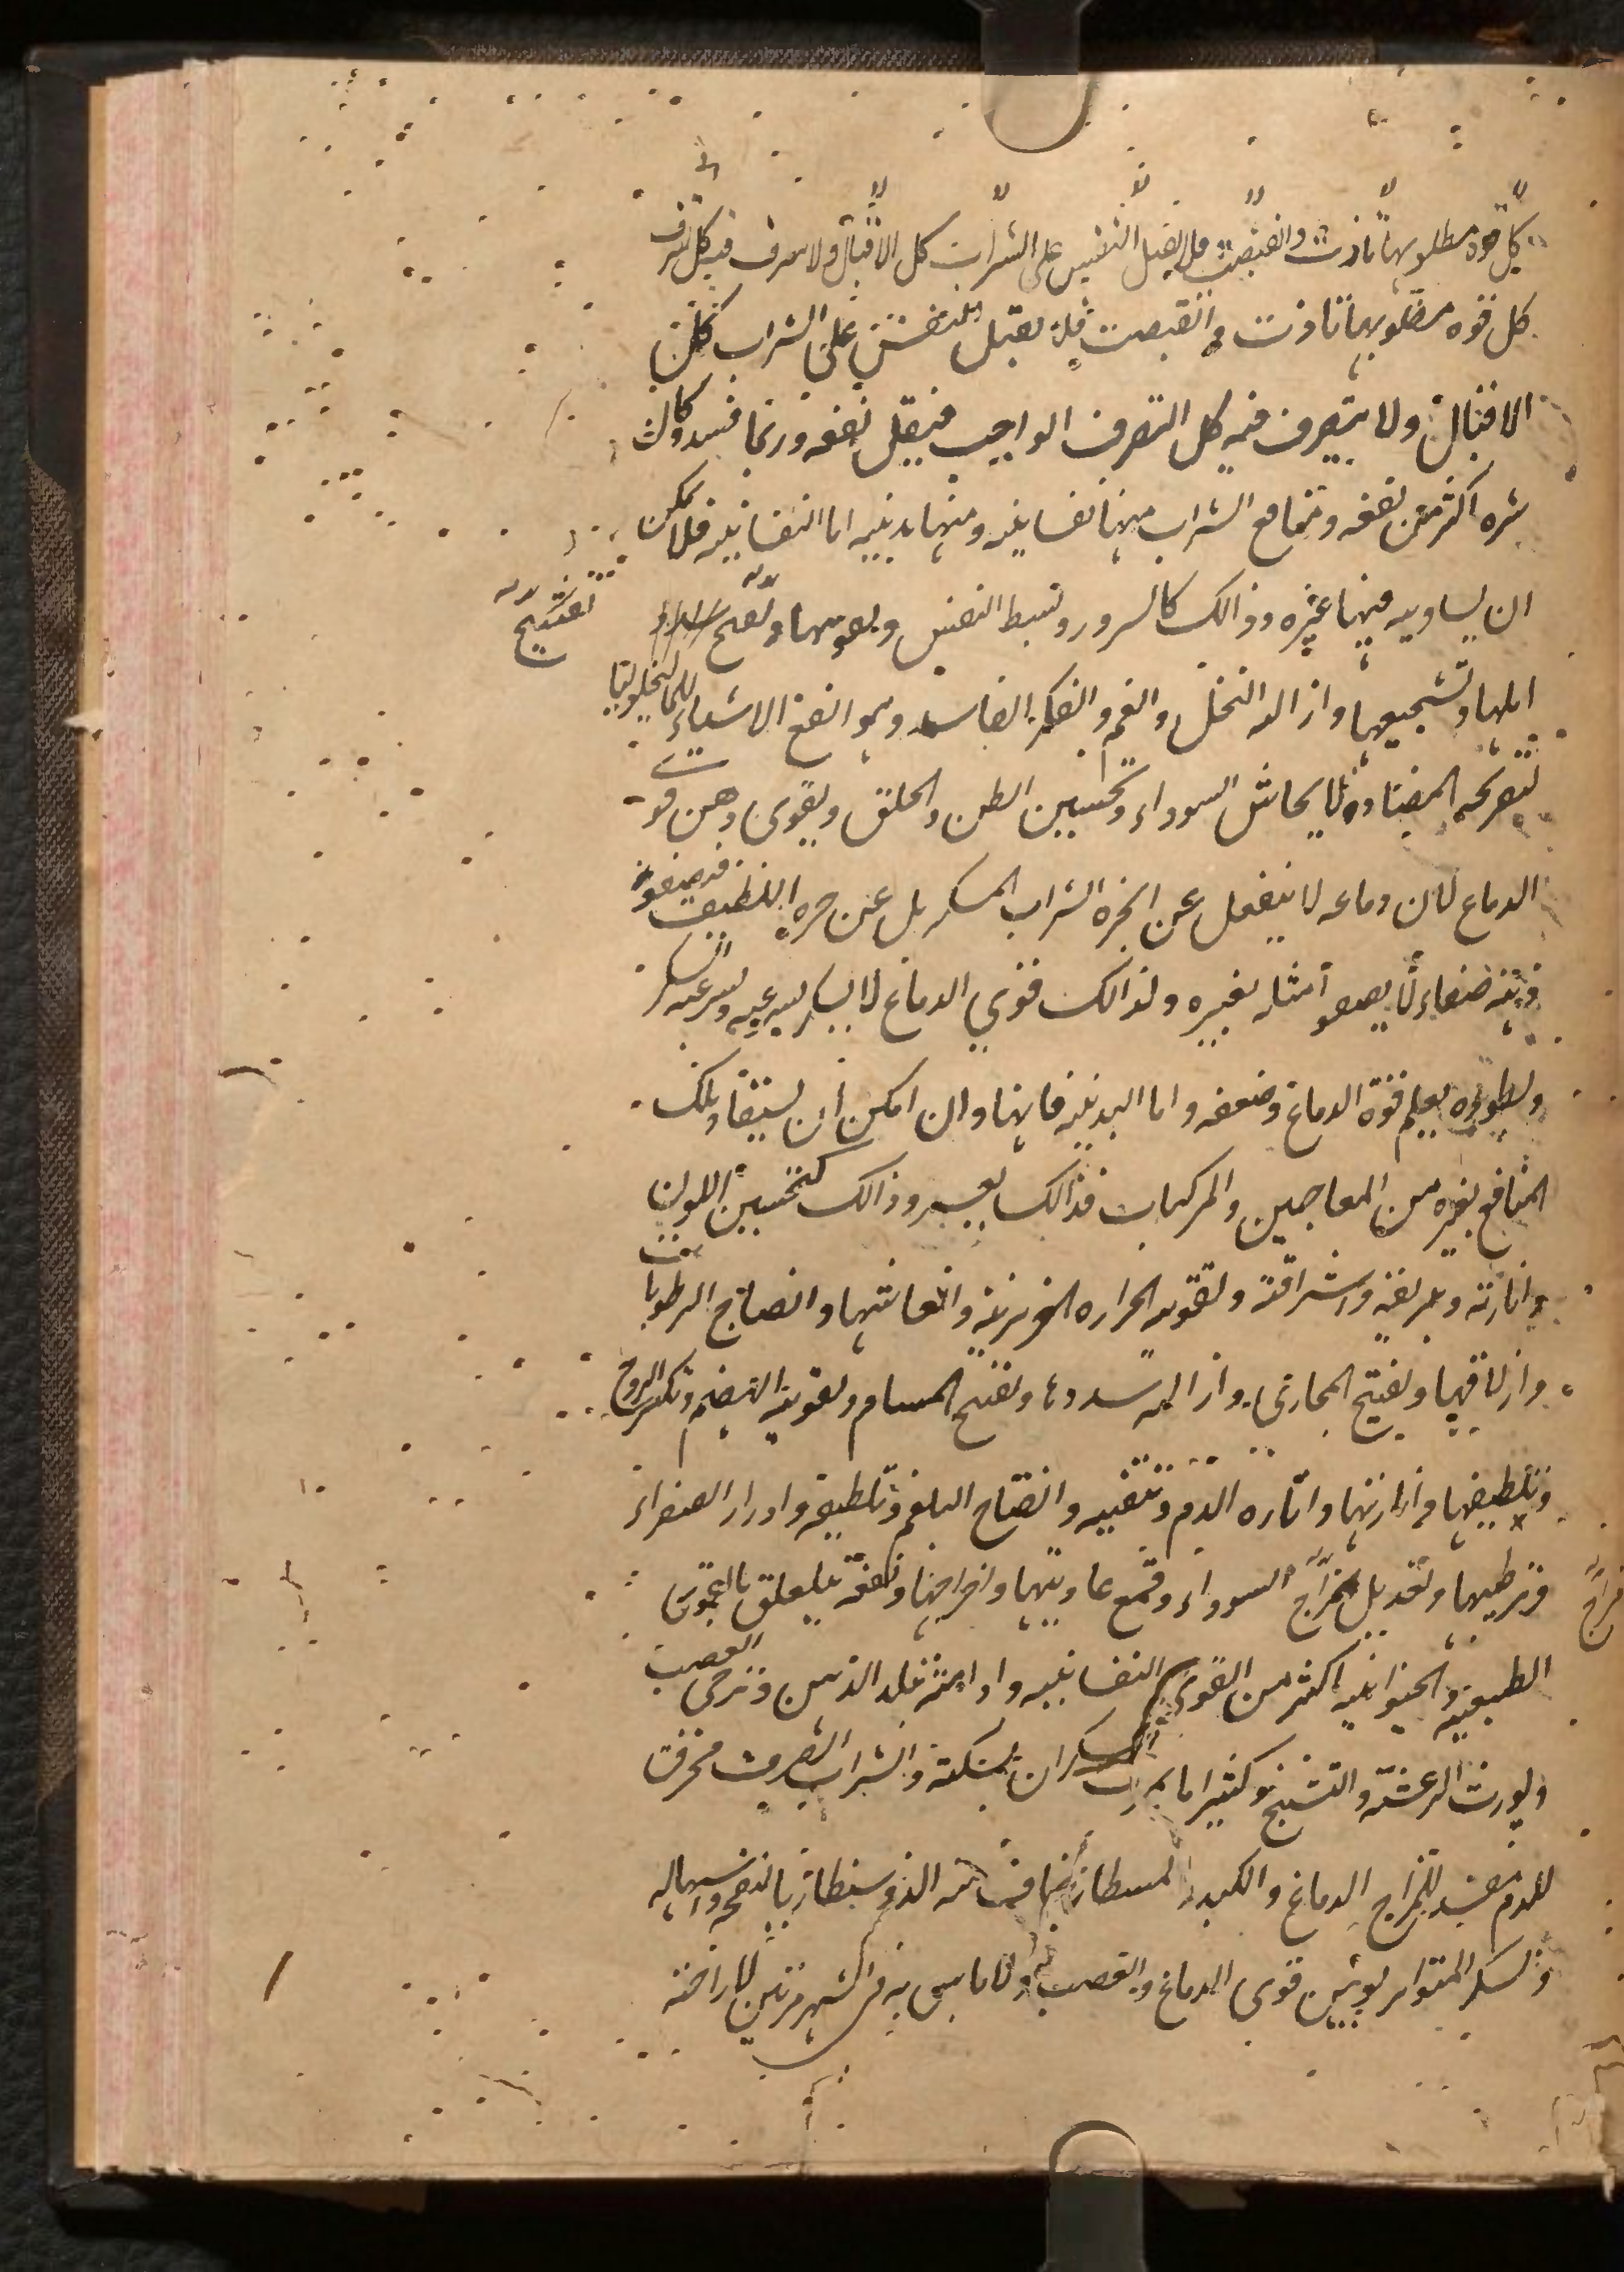 كل قوة مطلوبها تاذت وانقبضت فلا يقبل النفس على الشراب كل الاقبال ولا تصرف فيه كل تصرف
كل قوه مطلوبها تاذت و انقبصت فلا تقبل النفس على الشراب كل
الاقبال ولا يتصرف فيه كل التصرف الواجب فيقل نفعه وربما فسد وكان
شره اكثر من نفعه ومنافع الشراب منها نفسانيه ومنها بدنيه اما النفسانيه فلا يمكن
ان يساويه فيها غيره وذالك كالسرور وبسط النفس وبعو تها و تفسح
تفسيح
املها وتشجيعها وازاله البخل والغم والفكر الفاسد وهو انفع الاشياء للمالنخوليا
لتفريحه المضاده لايحاش السوداء وتحسين الظن والخلق ويقوى ذهن قوى
الدماغ لان دماغه لا ينفعل عن ابخرة الشراب المسكر بل عن حره اللطيف فيصفو
ذهنه صفاء لا يصفو مثله بغيره ولذالك قوي الدماغ لا يسكر بسرعه وبسرعه السكر
وبطوءه يعلم قوة الدماغ وضعفه و اما البدنيه فانها وان امكن ان يستفاد تلك
المنافع بغيره من المعاجين والمركبات فذالك بعسر وذالك كتحسين اللون
وانارته و بريقه واشراقه وتقويه الحراره الغريزيه وانعاشها و انضاج الرطوبات
وازلاقها وتفتيح المجارى وازاله سددها وتفتيح المسام وتقويه الهضم وتكثير الروح
وتلطيفها وانارتها واثاره الدم وتنقيه وانضاج البلغم وتلطيفه وادرار الصفراء
وترطيبها وتعديل مزاج السوداء وقمع عاديتها واخراجها ونفعه يتعلق بالقوى
مزاج
الطبيعيه والحيوانيه اكثر من القوى النفسانيه وادامته تبلد الذهن وترخى العصب
ويورث الرعشه والتشنج وكثيرا ما يموت السكران بسكته والشراب الصرف محرق
للدم مفسد لمزاج الدماغ والكبد واسهاله
والسكر المتواتر يوهن قوى الدماغ والعصب ولا باس به فى الشهر مرتين لاراحته